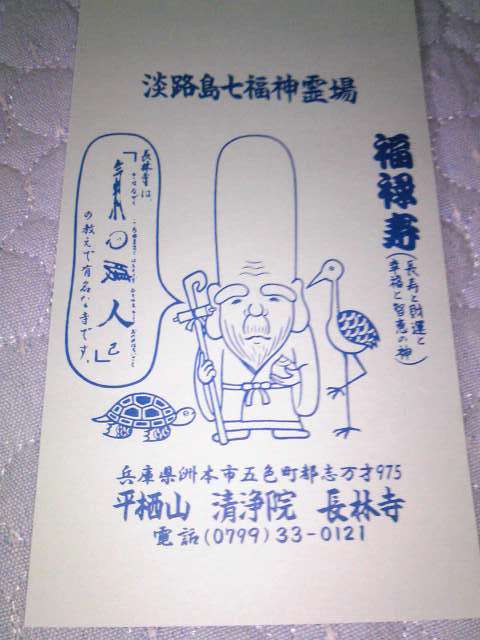 淡路島七福神霊場
福禄寿
(長寿と財運と
幸福と智恵の神)
長林寺は
「気 心 腹 人 己」
の教えで有名な寺です。
兵庫県洲本市五色町都志万才975
平栖山 清浄院 長林寺
電話(0799)33-0121